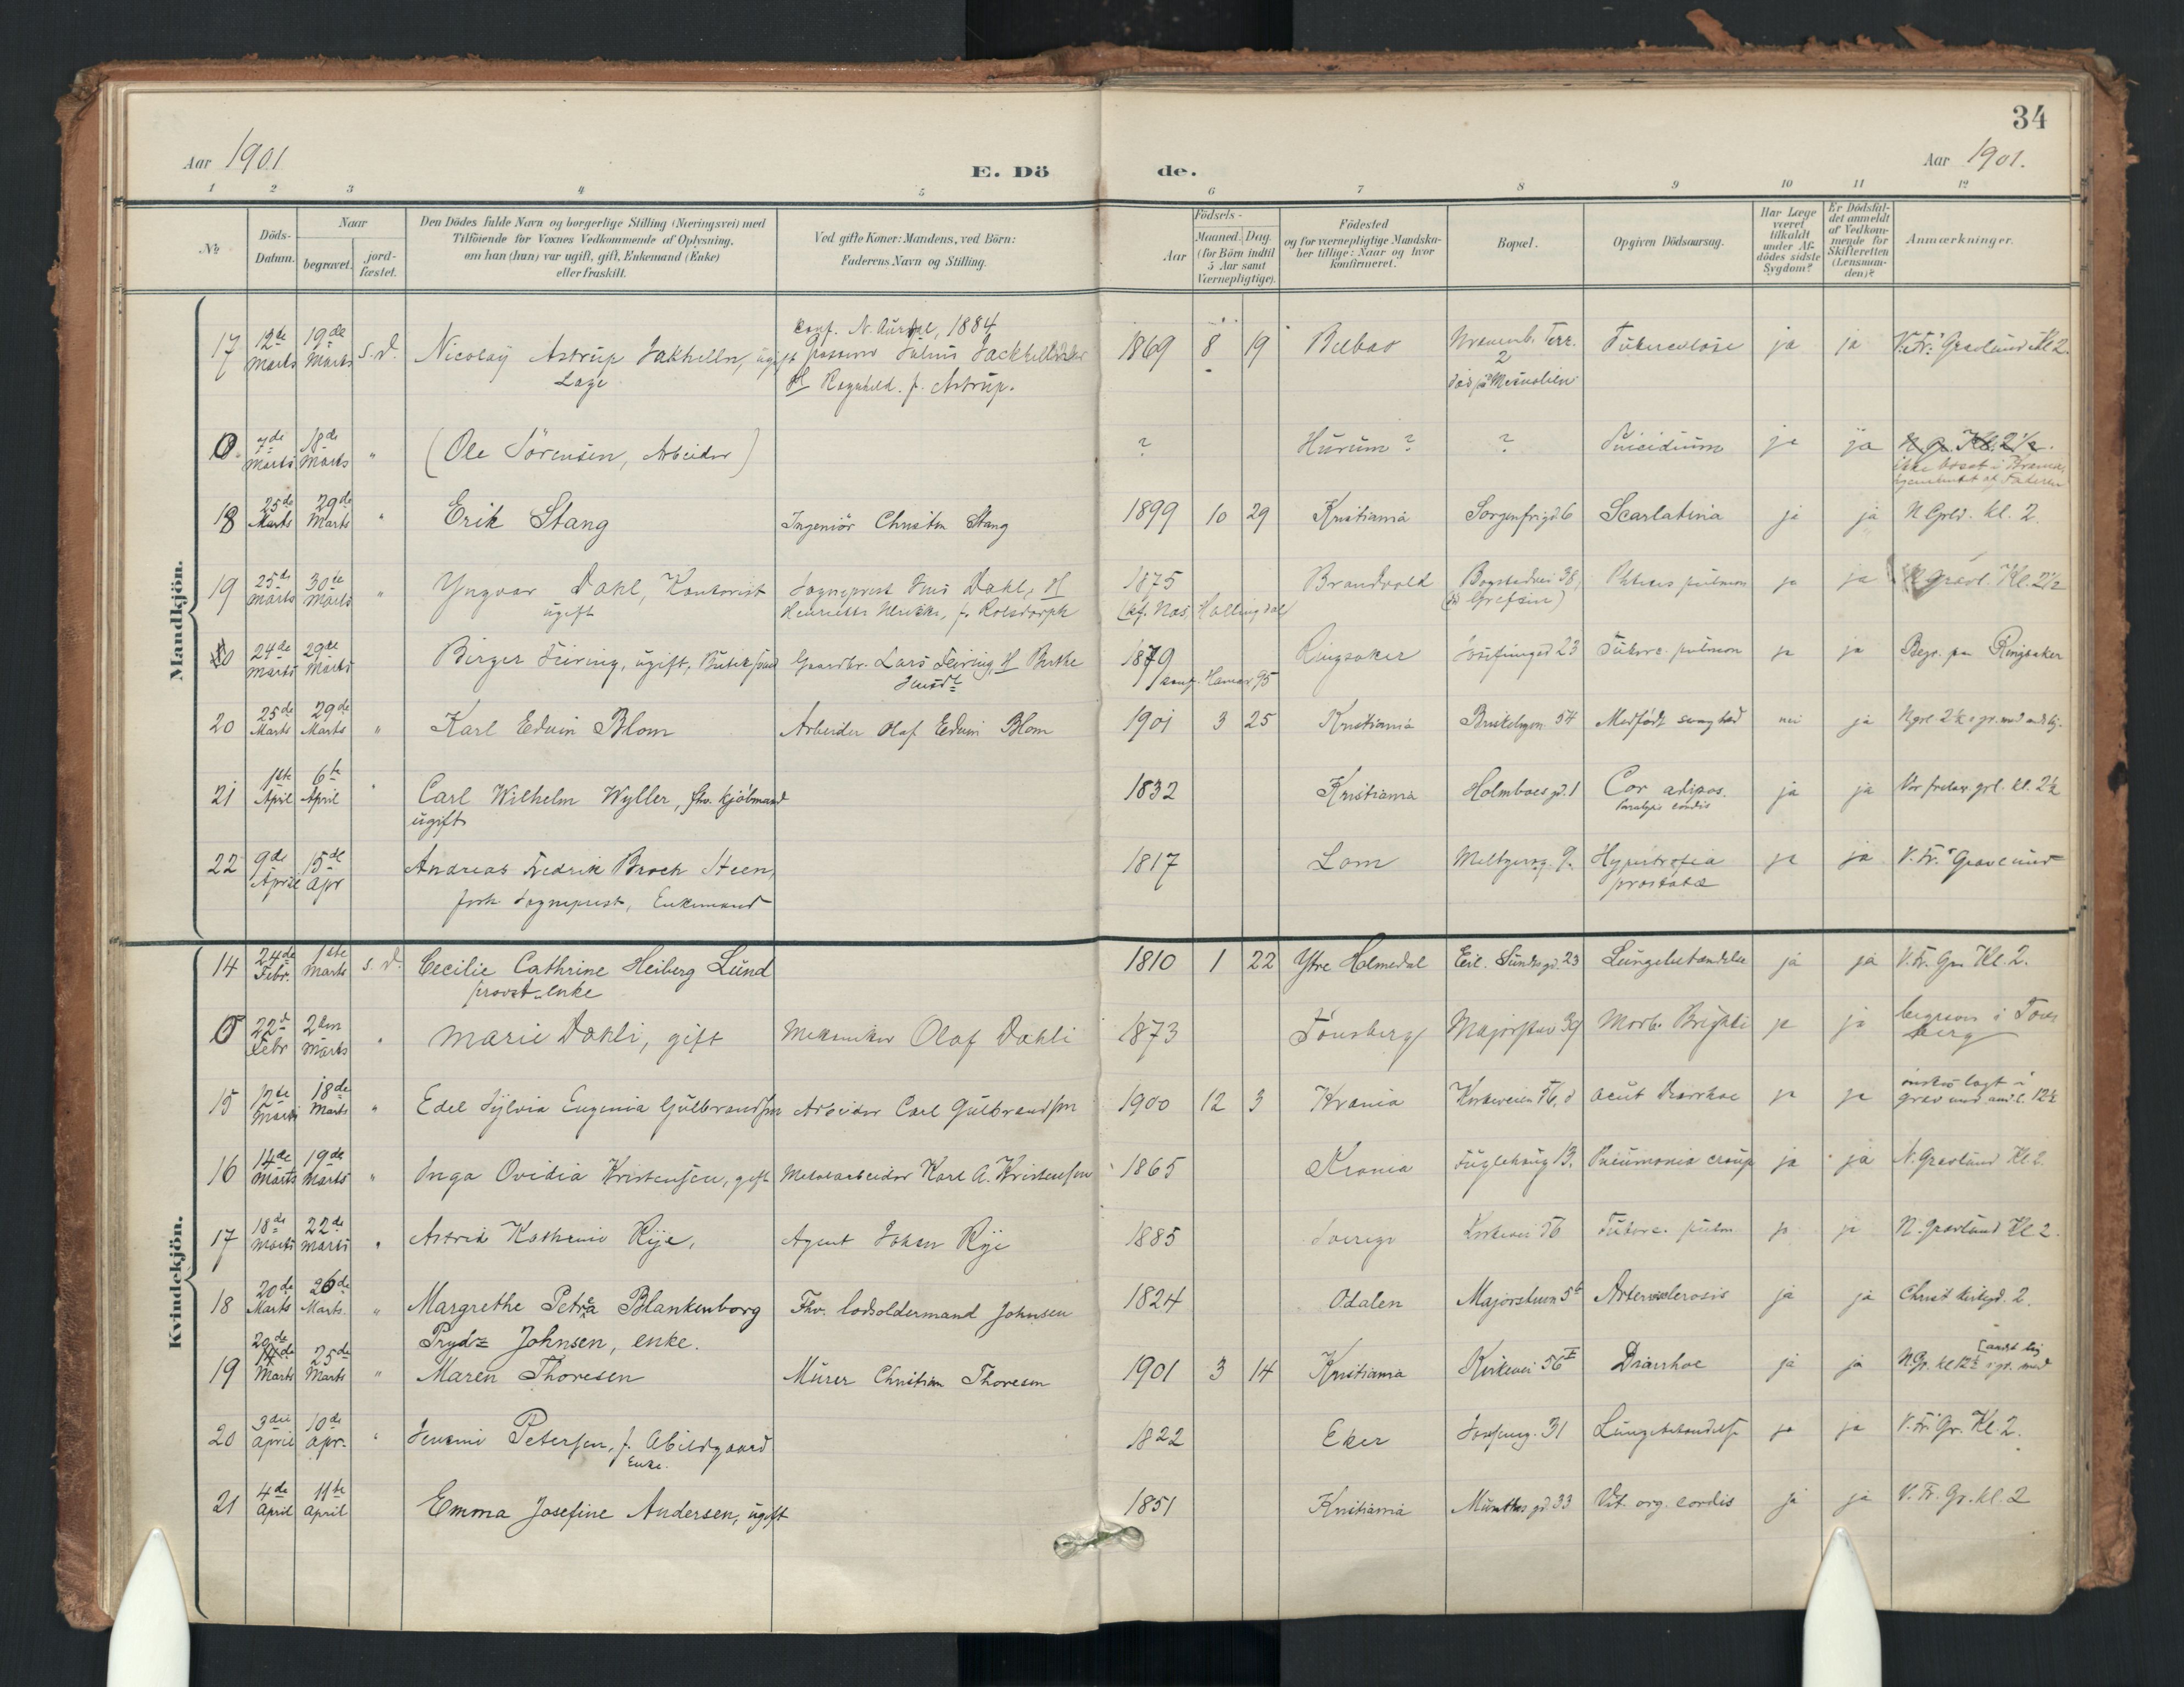 34
Aar 1901
E. Dö
de.
Aar 1901.
1 2 3 4 5 6 7 8 9 10 11 12
№
Döds-
Datum.
Naar
begravet.
jord-
fæstet.
Den Dödes fulde Navn og borgerlige Stilling (Næringsvei) med
Tilföiende for Voxnes Vedkommende af Oplysning,
om han (hun) var ugift, gift, Enkemand (Enke)
eller fraskilt.
Ved gifte Koner: Mandens, ved Börn:
Faderens Navn og Stilling.
Födsels-
Aar
Maaned. Dag.
(for Börn indtil
5 Aar samt
Værnepligtige).
Födested
og for værnepligtige Mandska-
ber tillige: Naar og hvor
konfirmeret.
Bopæl.
Opgiven Dödsaarsag.
Har Læge
været
tilkaldt
under Af-
dödes sidste
Sygdom?
Er Dödsfal-
det anmeldt
af Vedkom-
mende for
Skifteretten
(Lensman-
den)?
Anmærkninger.
Mandkjön.
17 12de Marts 19de Marts s. d. Nicolay Astrup Jakhelln, ugift
Læge
conf. N. Aurdal, 1884
Julius Jackhelln
H Ragnhild f. Astrup.
1869 8 19 Bilbao Terr. 2
Tuberculose ja ja V. Fr. Gravlund Kl 2.
0 7de Marts 18de Marts " (Ole Sörensen, Arbeider) ? Hurum? ? Suicidium ja ja
18 25de Marts 29de Marts " Erik Stang Ingeniör Christen Stang 1899 10 29 Kristiania Sorgenfrigd. 6 Scarlatina ja ja N Grld. kl. 2.
19 25de Marts 30te Marts " Yngvar Dahl, Kontorist
ugift
Sogneprest Dahl, H
Henriette
1875
(kf. Næs, Hallingdal)
Brandvold Bogstadvei 38
(Grefsen)
Phtisis pulmon ja ja N Gravl. Kl. 2½
20 24de Marts 29de Marts Birger Feiring, ugift, Gaardbr. Lars Feiring, H
1879
conf. Hamar 95
Ringsaker Josefinegd 23 Tuberc. pulmon ja ja Begr. paa Ringsaker
20 25de Marts 29de Marts " Karl Edvin Blom Arbeider Olaf Edvin Blom 1901 3 25 Kristiania Briskebyvn. 54 Medfödt svaghed nei ja
21 1ste April 6te April " Carl Wilhelm Wyller, fhv. kjöbmand
ugift
1832 Kristiania Holmboes gd. 1 Cor adipos.
Paralysis cordis
ja ja Vor frelser. grl. kl. 2½
22 9de April 15de Apr Andreas Fredrik Broch Steen,
forh. Sogneprest, Enkemand
1817 Lom Meltzersg. 9. Hypertrofia
prostatæ
ja ja V. Fr. Gravlund
Kvindekjön.
14 24de Febr. 1ste Marts s. d. Cecilie Cathrine Heiberg Lund
provst-enke
1810 1 22 Ytre Holmedal Eil. Sundts gd. 23 Lungebetændelse ja ja V. Fr. Gr. Kl. 2.
0 22d Febr 2den Marts " Marie Dahli, gift Mekaniker Olaf Dahli 1873 Tönsberg Majorstuv 39 Morb. Brighti ja ja begraves i Töns
berg
15 12te Marts 18de Marts " Edel Sylvia Eugenia Gulbrandsen Arbeider Carl Gulbrandsen 1900 12 3 Krania Kirkeveien 56, d acut Diarrhoe ja ja önskes lagt i
grav med and. l. 12½
16 14de Marts 19de Marts " Inga Ovidia Kristensen, gift Metalarbeider Karl A. Kristensen 1865 Krania Fuglehaug 13. Pneumonia croup ja ja N. Gravlund Kl 2.
17 18de Marts 22de Marts " Astrid Kathinie Rye, Agent Johan Rye 1885 Sverige Kirkevei 56 Tuberc. pulm ja ja N. Gravlund Kl 2.
18 20de Marts 26de Marts. " Margrethe Petrea Blankenborg
Prydz Johnsen, enke.
Fhv. lodsoldermand Johnsen 1824 Odalen Majorstuvn 5b Arteriosclerosis ja ja Christ kirkegd. 2.
19 20de Marts 25de Marts " Maren Thoresen Murer Christian Thoresen 1901 3 14 Kristiania Kirkevei 56 I Diarrhoe ja ja N Gr. kl 12½ i gr. med
andet lig
20 3die April 10de Apr. " Petersen, f. Abildgaard
Enke.
1822 Eker Josefineg. 31 Lungebetændelse ja ja V. Fr. Gr. Kl. 2.
21 4de April 11te April Emma Josefine Andersen, ugift 1851 Kristiania Munthes gd 33 Vit. org. cordis ja ja V. Fr. Gr. kl. 2